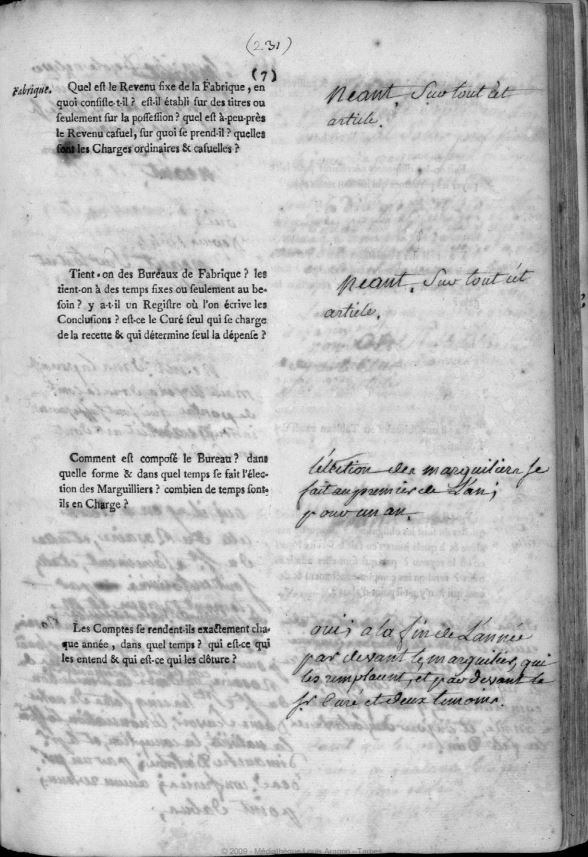 (231)
(7)
Fabrique.
Quel est le Revenu fixe de la Fabrique, en
quoi consiste-t-il ? est-il établi sur des titres ou
seulement sur la possession ? quel est à-peu-près
le Revenu casuel, sur quoi se prend-il ? quelles
sont les Charges ordinaires & casuelles ?
neant. Sur tout cèt
article.
Tient-on des Bureaux de Fabrique ? les
tient-on à des temps fixes ou seulement au be-
soin ? y a-t-il un Registre où l'on écrive les
Conclusions ? est-ce le Curé seul qui se charge
de la recette & qui détermine seul la dépense ?
neant. Sur tout cèt
article.
Comment est composé le Bureau ? dans
quelle forme & dans quel temps se fait l'élec-
tion des Marguilliers ? combien de temps sont-
ils en Charge ?
l'élection des marguiliers se
fait au premier de L'an;
pour un an.
Les Comptes se rendent-ils exactement cha-
que année, dans quel temps ? qui est-ce qui
les entend & qui est-ce qui les clôture ?
oui; a la fin de L'année
par devant les marguiliers, qui
les remplacent, et par devant le
sr. Curé et deux temoins.
© 2009 - Médiathèque Louis Aragon - Tarbes